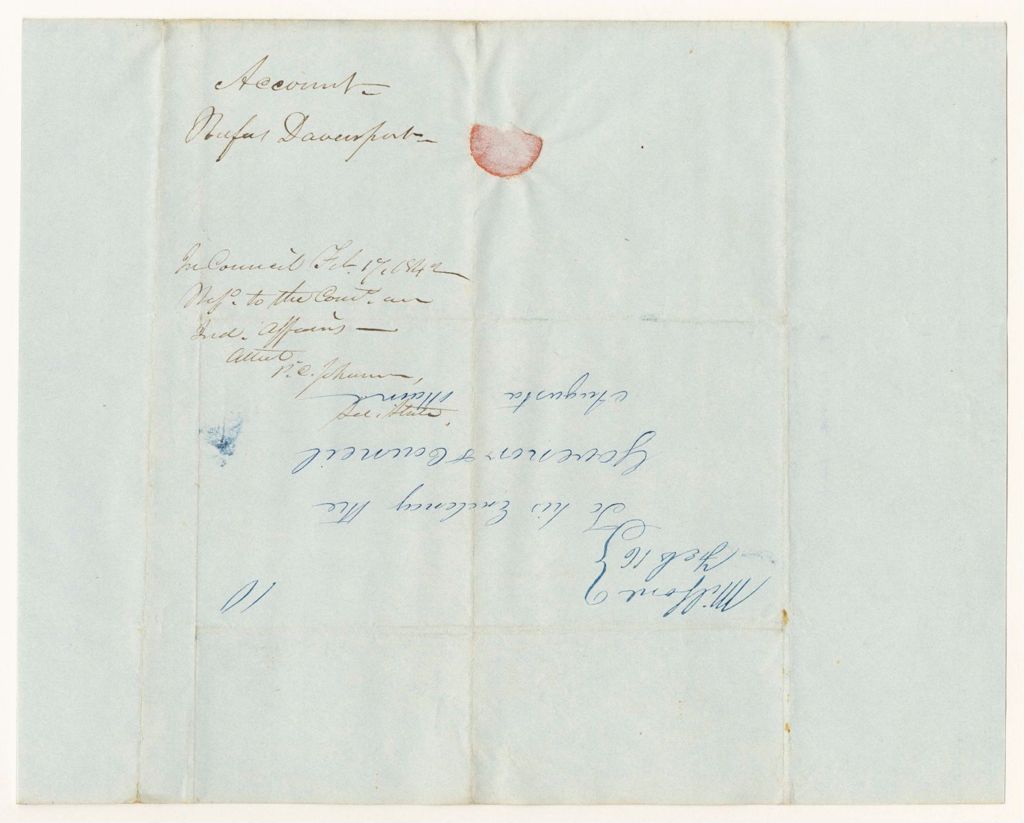 Account
Rufus Davenport
In Council Feb. 17, 1842
Refd. to the Comt. on
Ind. Affairs
Attest
P. C. Johnson,
Sec. State.
Milford
Feb 16
10
To his Exelency the
Govenor & Council
Augusta
Maine